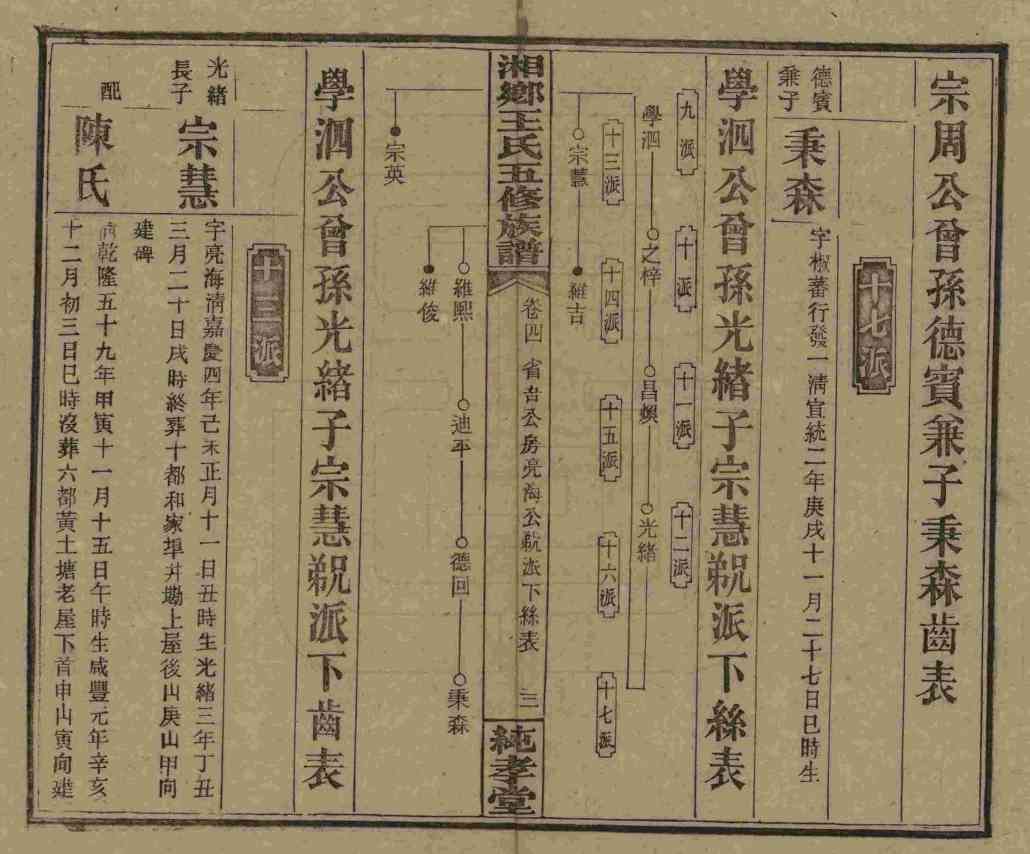 宗周公曾孫德賓兼子秉森齒表
十七派
德賓兼子
秉森
字椒蕃行發一清宣統二年庚戌十一月二十七日巳時生
學泗公曾孫光緒子宗慧覡派下絲表
九派
十派
十一派
十二派
學泗
之梓
昌㜙
光緒
十三派
十四派
十五派
十六派
十七派
宗慧
維吉
湘鄉王氏五修族譜
卷四
省吾公房亮海公覡派下絲表
三
純孝堂
維熙
迪平
德回
秉森
維俊
宗英
學泗公曾孫光緒子宗慧覡派下齒表
十三派
光緒長子
宗慧
字亮海清嘉慶四年己未正月十一日丑時生光緒三年丁丑
三月二十日戌時終葬十都和家埠井墈上屋後山庚山甲向
建碑
配
陳氏
清乾隆五十九年甲寅十一月十五日午時生咸豐元年辛亥
十二月初三日巳時沒葬六都黃土塘老屋下首申山寅向建